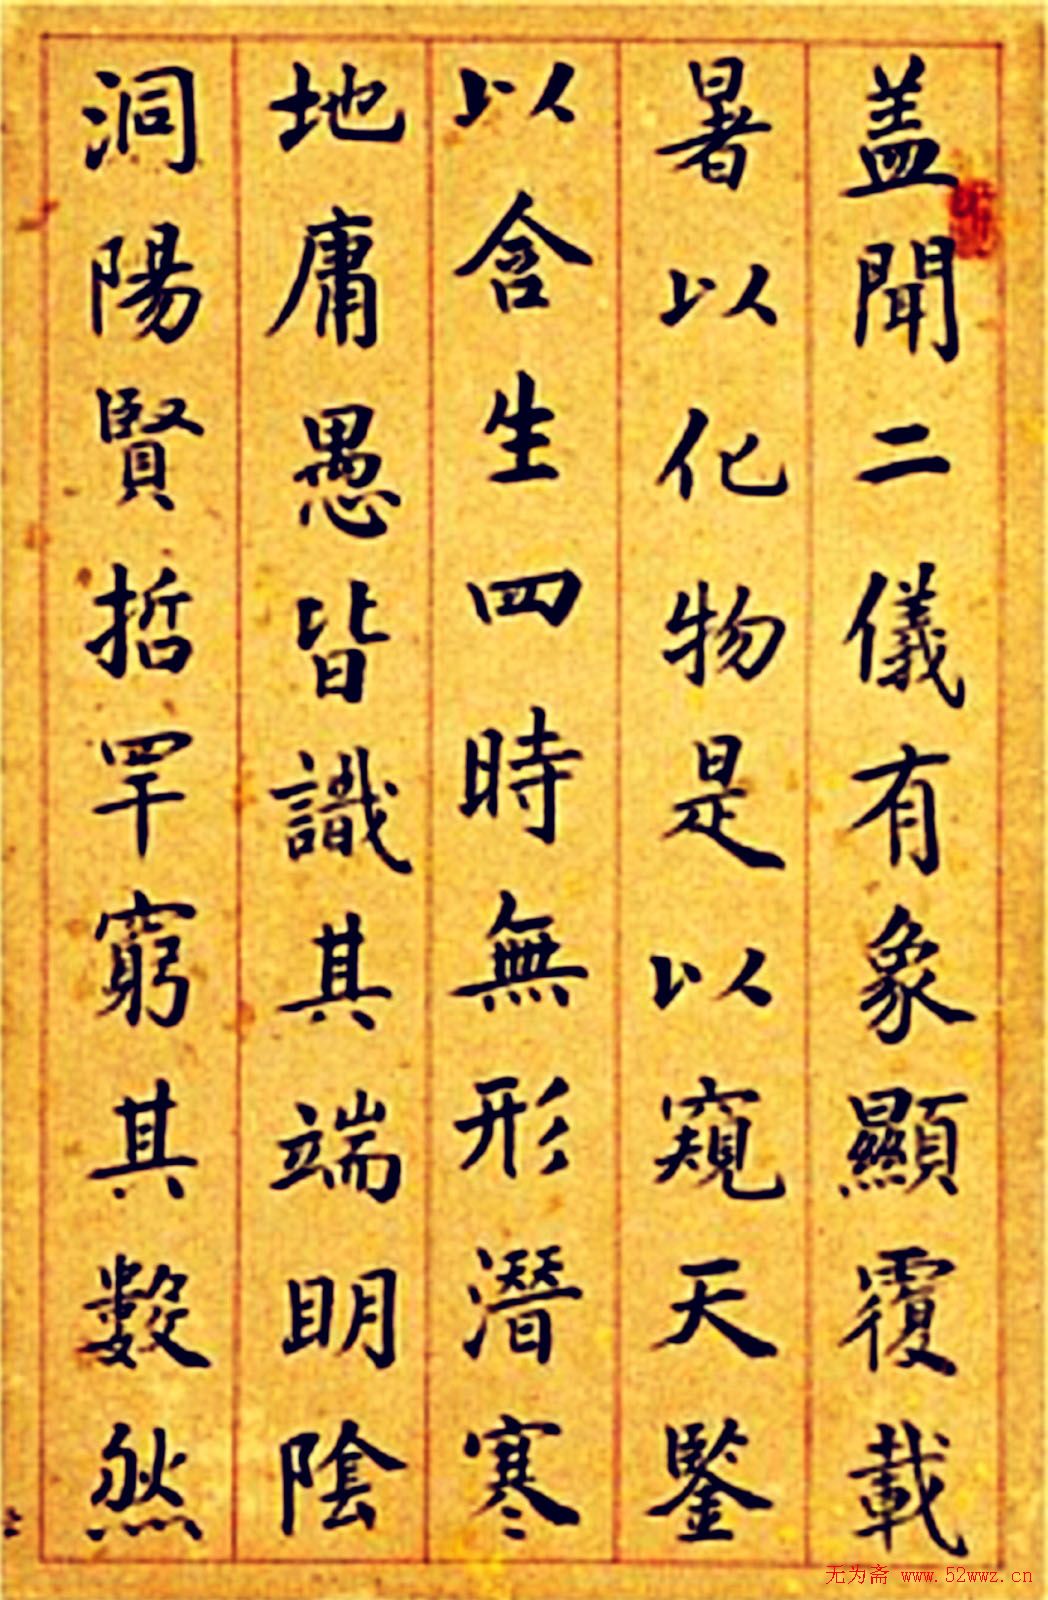 盖聞二儀有象顯覆載
暑以化物是以窺天鑒
以含生四時無形潛寒
地庸愚皆識其端明陰
洞陽賢哲罕窮其數然
无为斋 www.52wwz.cn